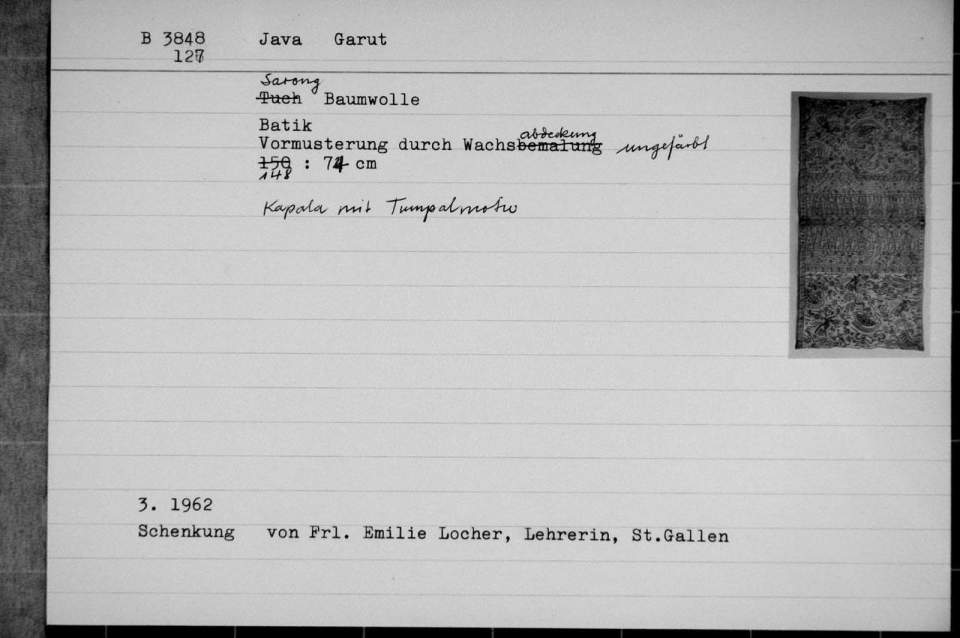 B 3848 Java Garut
127
Sarong
Tuch Baumwolle
Batik
abdeckung
Vormusterung durch Wachsbemalung ungefärbt
150 : 74 cm
148
Kapala mit Tumpalmotiv
3. 1962
Schenkung von Frl. Emilie Locher, Lehrerin, St.Gallen